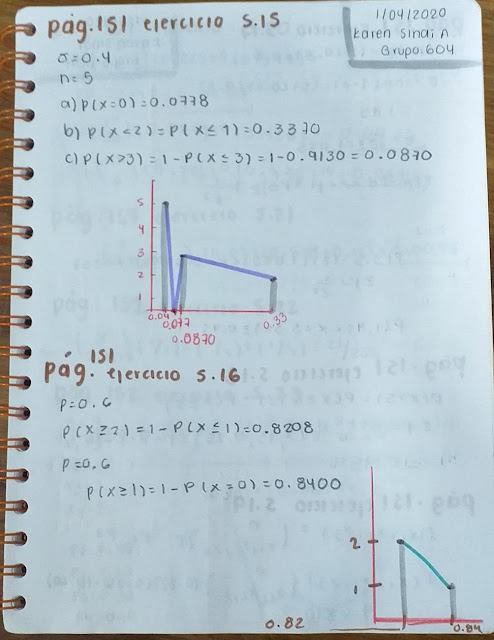 pág.151 ejercicio 5.15
1/04/2020
Karen Sindi A
Grupo:604
σ=0.4
n=5
a) P(x=0)=0.0778
b) P(x<2)=P(x≤1)=0.3370
c) P(x>3)=1-P(x≤3)=1-0.9130=0.0870
5
4
3
2
1
0.04
0.077
0.33
0.0870
pág. 151 ejercicio 5.16
P=0.6
P(x≥2)=1-P(x≤1)=0.8208
P=0.6
P(x≥1)=1-P(x=0)=0.8400
2
1
0.82
0.84